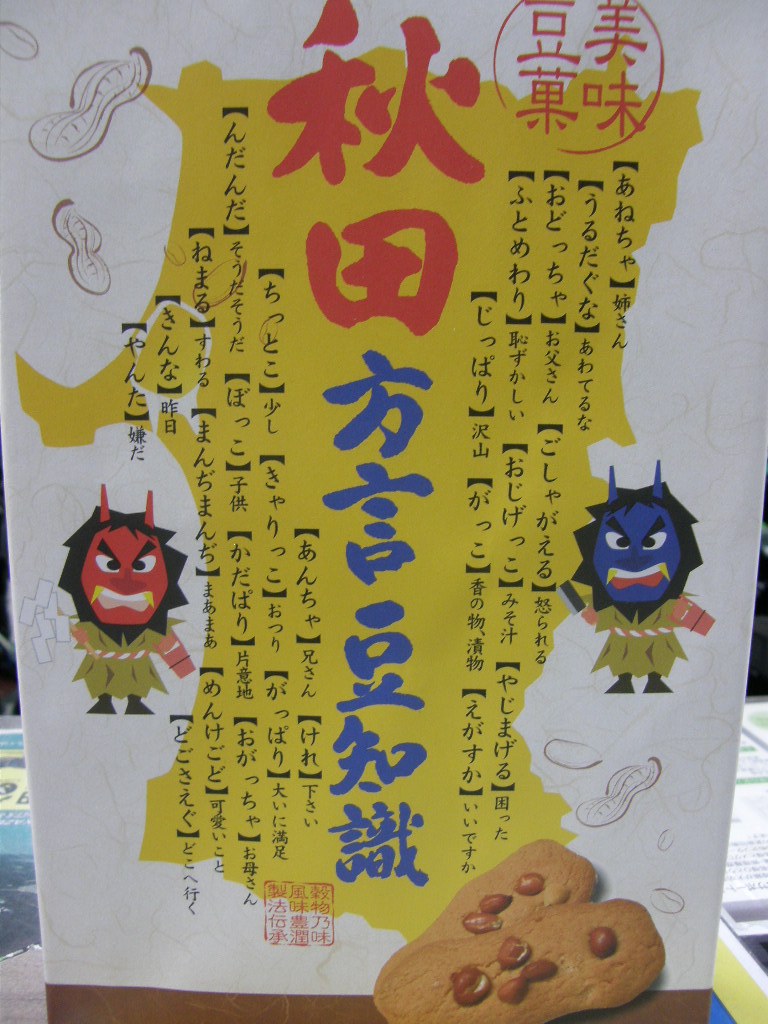 美味
豆菓
秋田
方言豆知識
【あねちゃ】姉さん
【うるだぐな】あわてるな
【おどっちゃ】お父さん
【ごしゃがえる】怒られる
【ふとめわり】恥ずかしい
【おじげっこ】みそ汁
【やじまげる】困った
【じっぱり】沢山
【がっこ】香の物、漬物
【えがすか】いいですか
【あんちゃ】兄さん
【けれ】下さい
【ちっとこ】少し
【きゃりっこ】おつり
【がっぱり】大いに満足
【んだんだ】そうだそうだ
【ぼっこ】子供
【かだぱり】片意地
【おがっちゃ】お母さん
【ねまる】すわる
【まんぢまんぢ】まあまあ
【めんけごど】可愛いこと
【きんな】昨日
【どごさえぐ】どこへ行く
【やんた】嫌だ
穀物乃味
風味豊潤
製法伝承